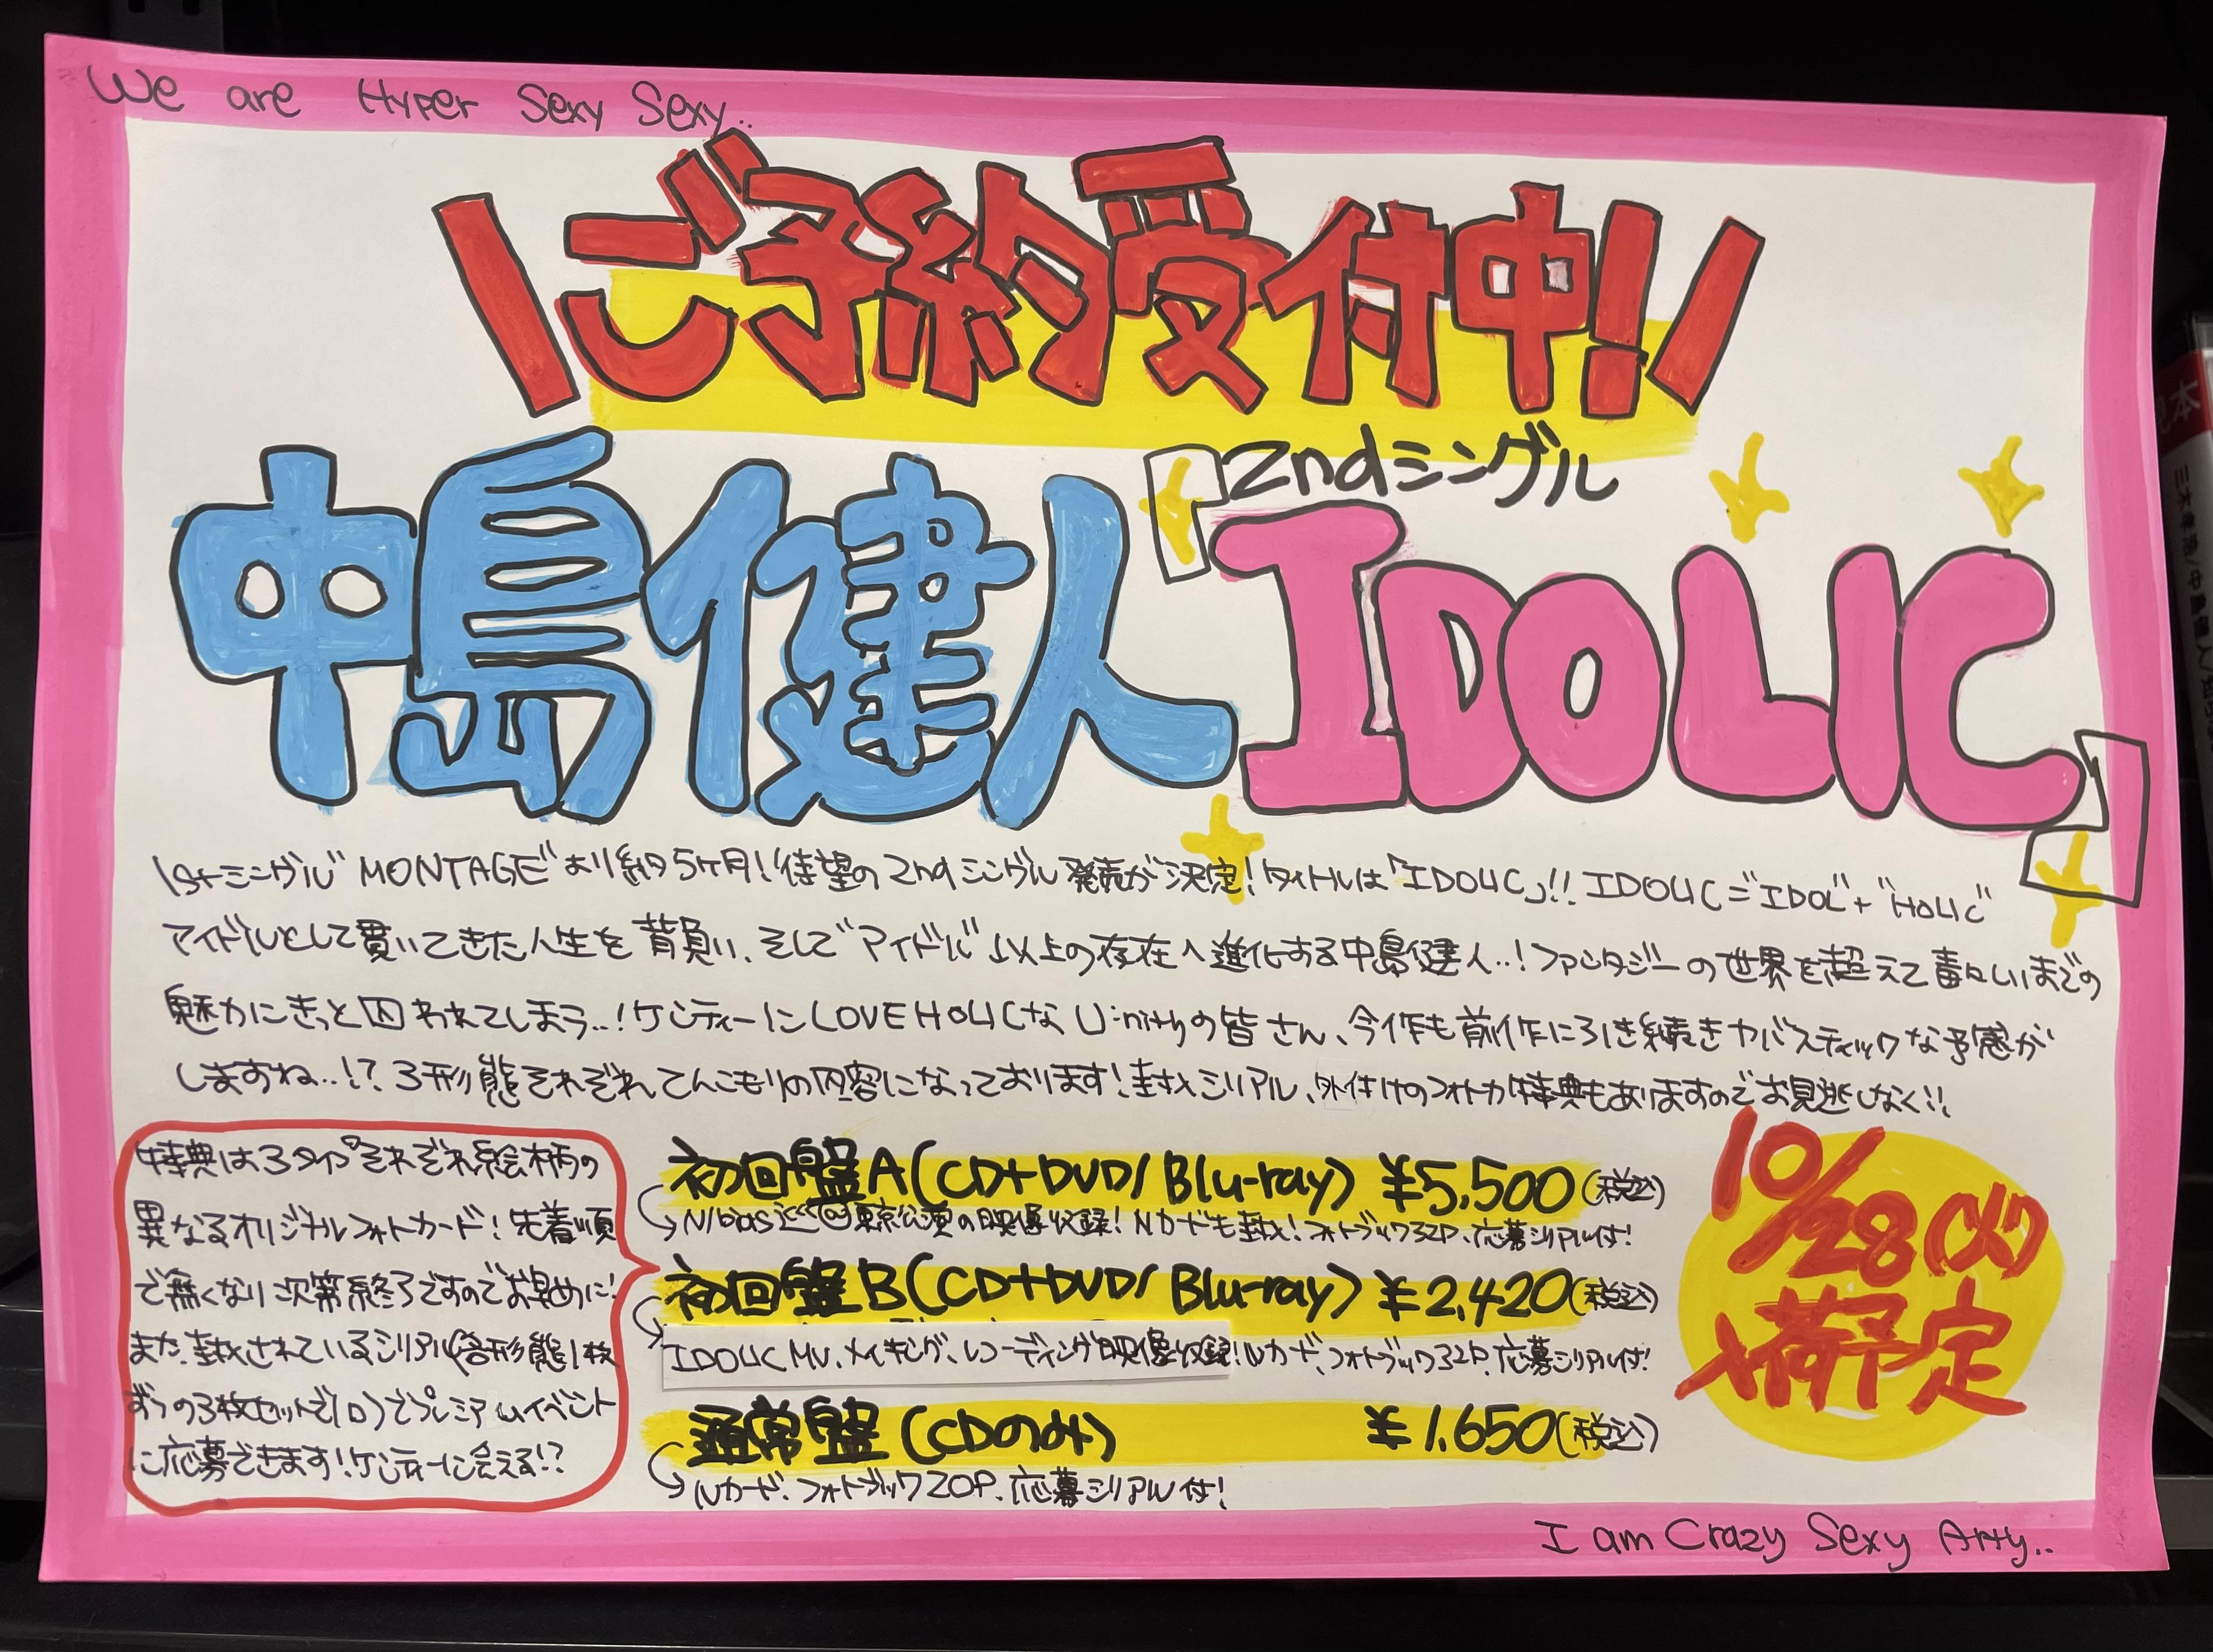 We are Hyper Sexy Sexy..
\ご予約受付中!!/
中島健人『2ndシングル
IDOLIC』
1stシングル"MONTAGE"より約5ヶ月!待望の2ndシングル発売が決定!タイトルは「IDOLIC」!! IDOLIC="IDOL"+"HOLIC"
アイドルとして貫いてきた人生を背負い、そして"アイドル"以上の存在へ進化する中島健人..!ファンタジーの世界を超えて毒々しいまでの
魅力にきっと囚われてしまう..!ケンティーにLOVE HOLICなU:nityの皆さん、今作も前作に引き続きヤバスティックな予感が
しますね..!?3形態それぞれてんこもりの内容になっております!封入シリアル、外付けのフォトカ特典もありますのでお見逃しなく!!
特典は3タイプそれぞれ絵柄の
異なるオリジナルフォトカード!先着順
で無くなり次第終了ですのでお早めに!
また、封入されているシリアル(各形態1枚
ずつの3枚セットで1口)でプレミアムイベント
に応募できます!ケンティーに会える!?
初回盤A(CD+DVD/Blu-ray) ¥5,500(税込)
N/bias巡@東京公演の映像収録!Nカードも封入!フォトブック32P、応募シリアル付!
初回盤B(CD+DVD/Blu-ray) ¥2,420(税込)
IDOLIC MV、メイキング、レコーディング映像収録!Nカード、フォトブック32P、応募シリアル付!
通常盤(CDのみ) ¥1,650(税込)
Nカード、フォトブック20P、応募シリアル付!
10/28(火)
入荷予定
I am Crazy Sexy Arty..